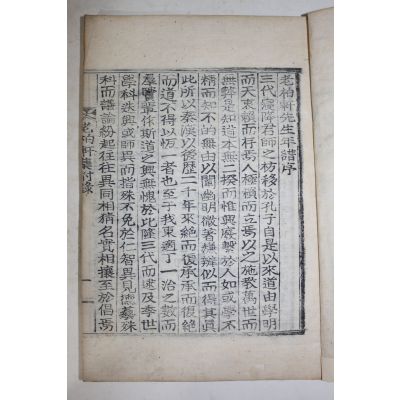 老柏軒先生年譜序
三代寢降君師之枋移於孔子自是以來道由學明
而天衷賴而存焉人極頼而立焉以之施教萬世而
無弊是知道本無二揆而惟興廢繫於人如或學不
精而知不的毋以闡幽明微著嫌辨似而得其眞
此所以秦漢以後歷二千年來絶而復承承而復絶
而道不得以恆一者也至于我東適丁一治之數而
羣賢輩作斯道之興無愧於比隆三代而逮及季世
學科迭興或師異而指殊不免於仁智異見德藝殊
科而譁論紛起往往異同相猜名實相攘至於倡焉
老柏軒集附錄
一